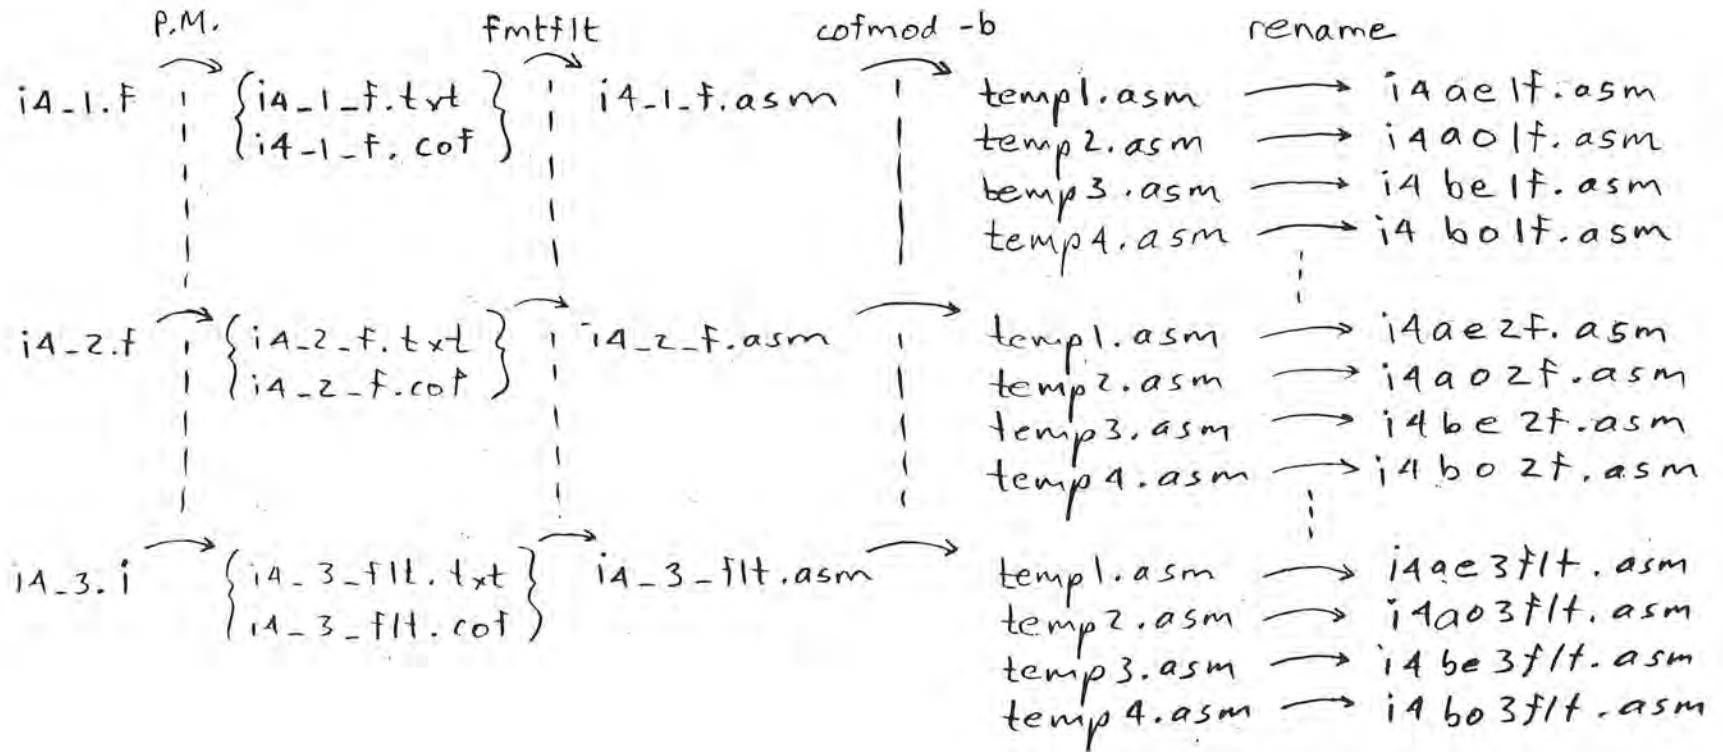 P.M. fmtflt cofmod -b rename
i4_1.f {i4_1_f.txt} i4_1_f.asm temp1.asm → i4ae1f.asm
{i4_1_f.cof} temp2.asm → i4ao1f.asm
temp3.asm → i4be1f.asm
temp4.asm → i4bo1f.asm
i4_2.f {i4_2_f.txt} i4_2_f.asm temp1.asm → i4ae2f.asm
{i4_2_f.cof} temp2.asm → i4ao2f.asm
temp3.asm → i4be2f.asm
temp4.asm → i4bo2f.asm
i4_3.i {i4_3_flt.txt} i4_3_flt.asm temp1.asm → i4ae3flt.asm
{i4_3_flt.cof} temp2.asm → i4ao3flt.asm
temp3.asm → i4be3flt.asm
temp4.asm → i4bo3flt.asm